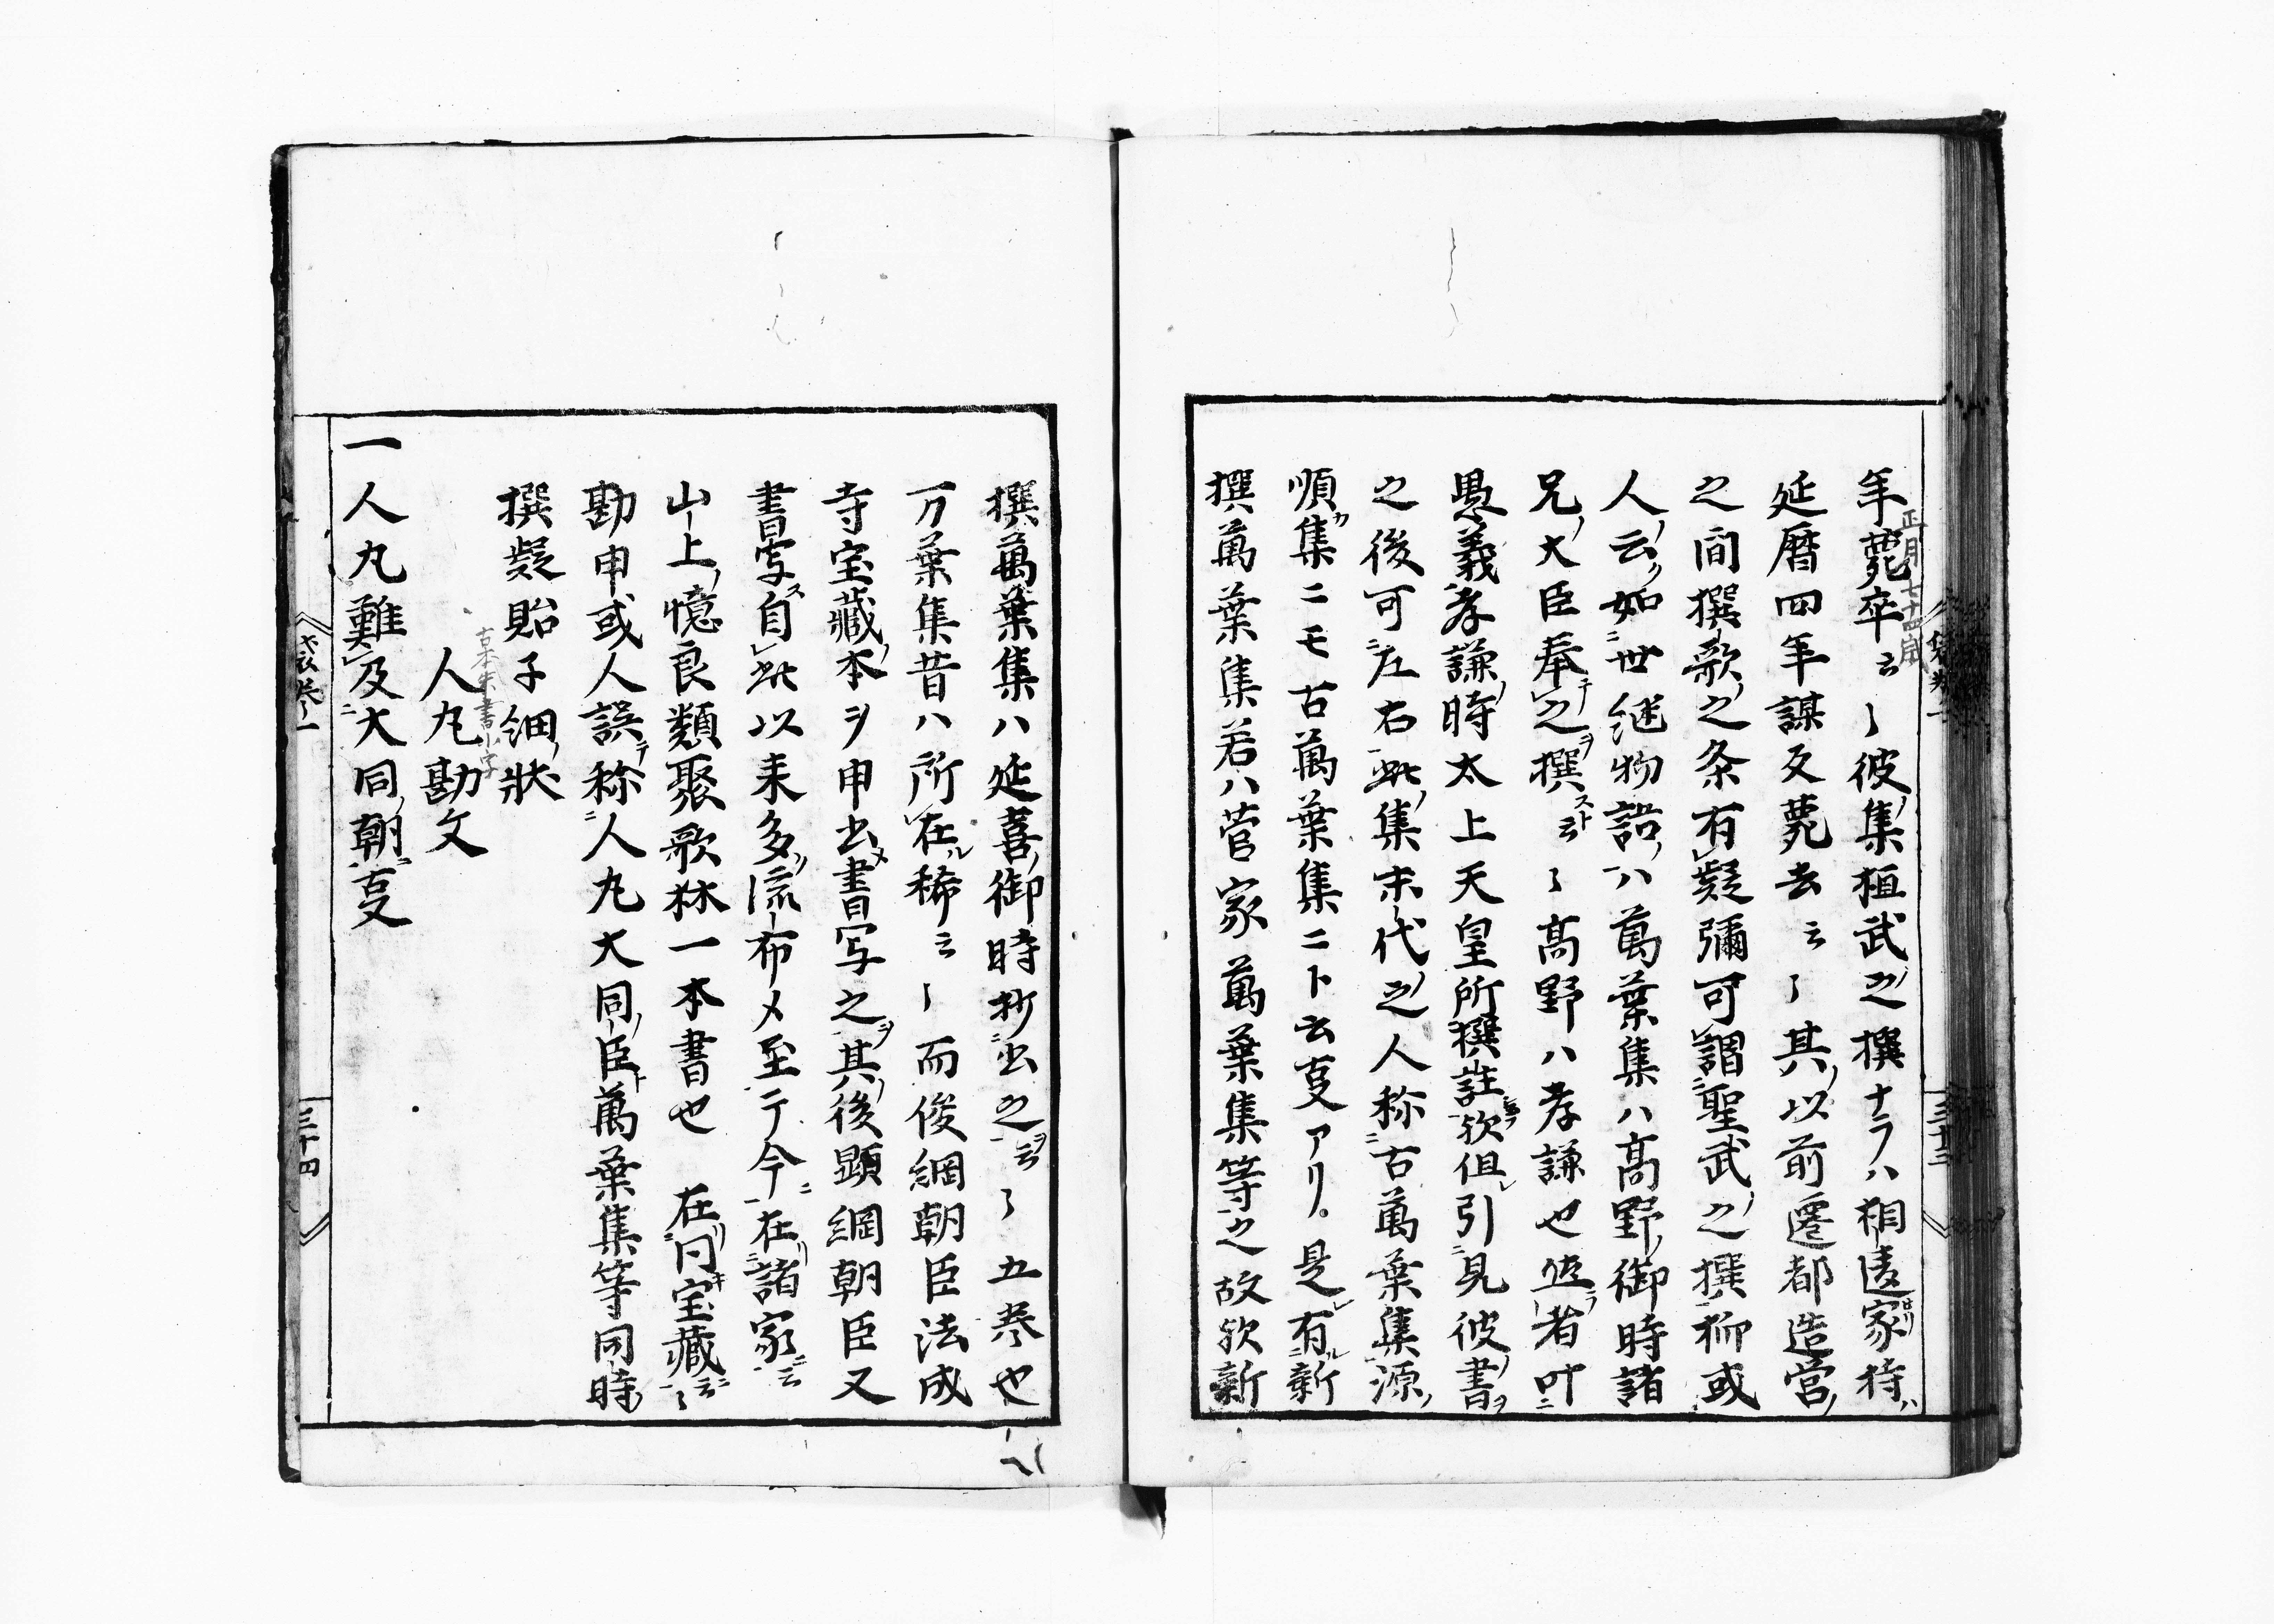 年薨卒云〻彼集桓武之撰ナラハ相違家持ハ
正月七十四歳
延暦四年謀反薨去云〻其以前遷都造営ノ
之間撰歌之条有疑彌可謂聖武之撰抑或
人云如世継物語ハ萬葉集ハ高野御時諸
兄大臣奉之撰云〻高野ハ孝謙也然者叶
愚義孝謙時太上天皇所撰註欤但引見彼書
之後可左右此集末代之人称古萬葉集源
順集ニモ古萬葉集ニト云叓アリ。是有新
撰萬葉集若ハ菅家萬葉集等之故欤新
撰萬葉集ハ延喜御時抄出之云〻五巻也
万葉集昔ハ所在稀云〻而俊綱朝臣法成
寺宝藏本ヲ申出書写之其後顕綱朝臣又
書写自此以来多流布乄至テ今在諸家云〻
山上憶良類聚歌林一本書也 在門宝藏云〻
勘申或人誤称人丸大同臣萬葉集等同時
撰疑貽子細状
古本朱書小字
人丸勘文
一人丸難及大同朝叓
三十四